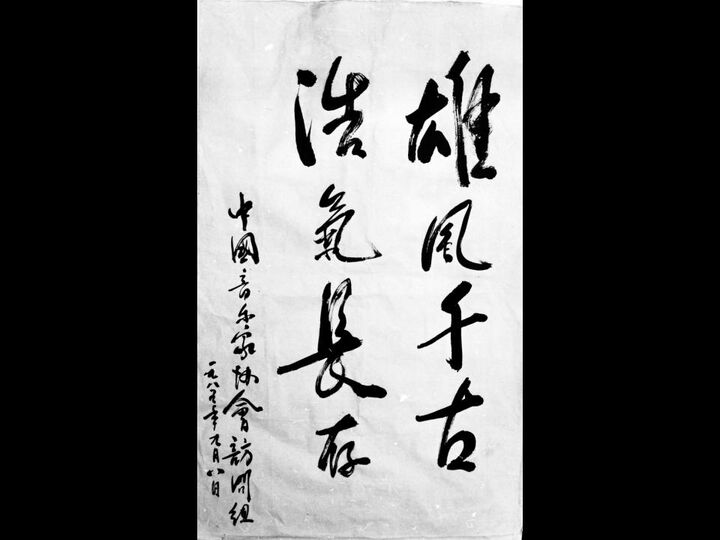 雄风千古
浩氣長存
中國音乐家协會訪問組
一九八五年元月八日